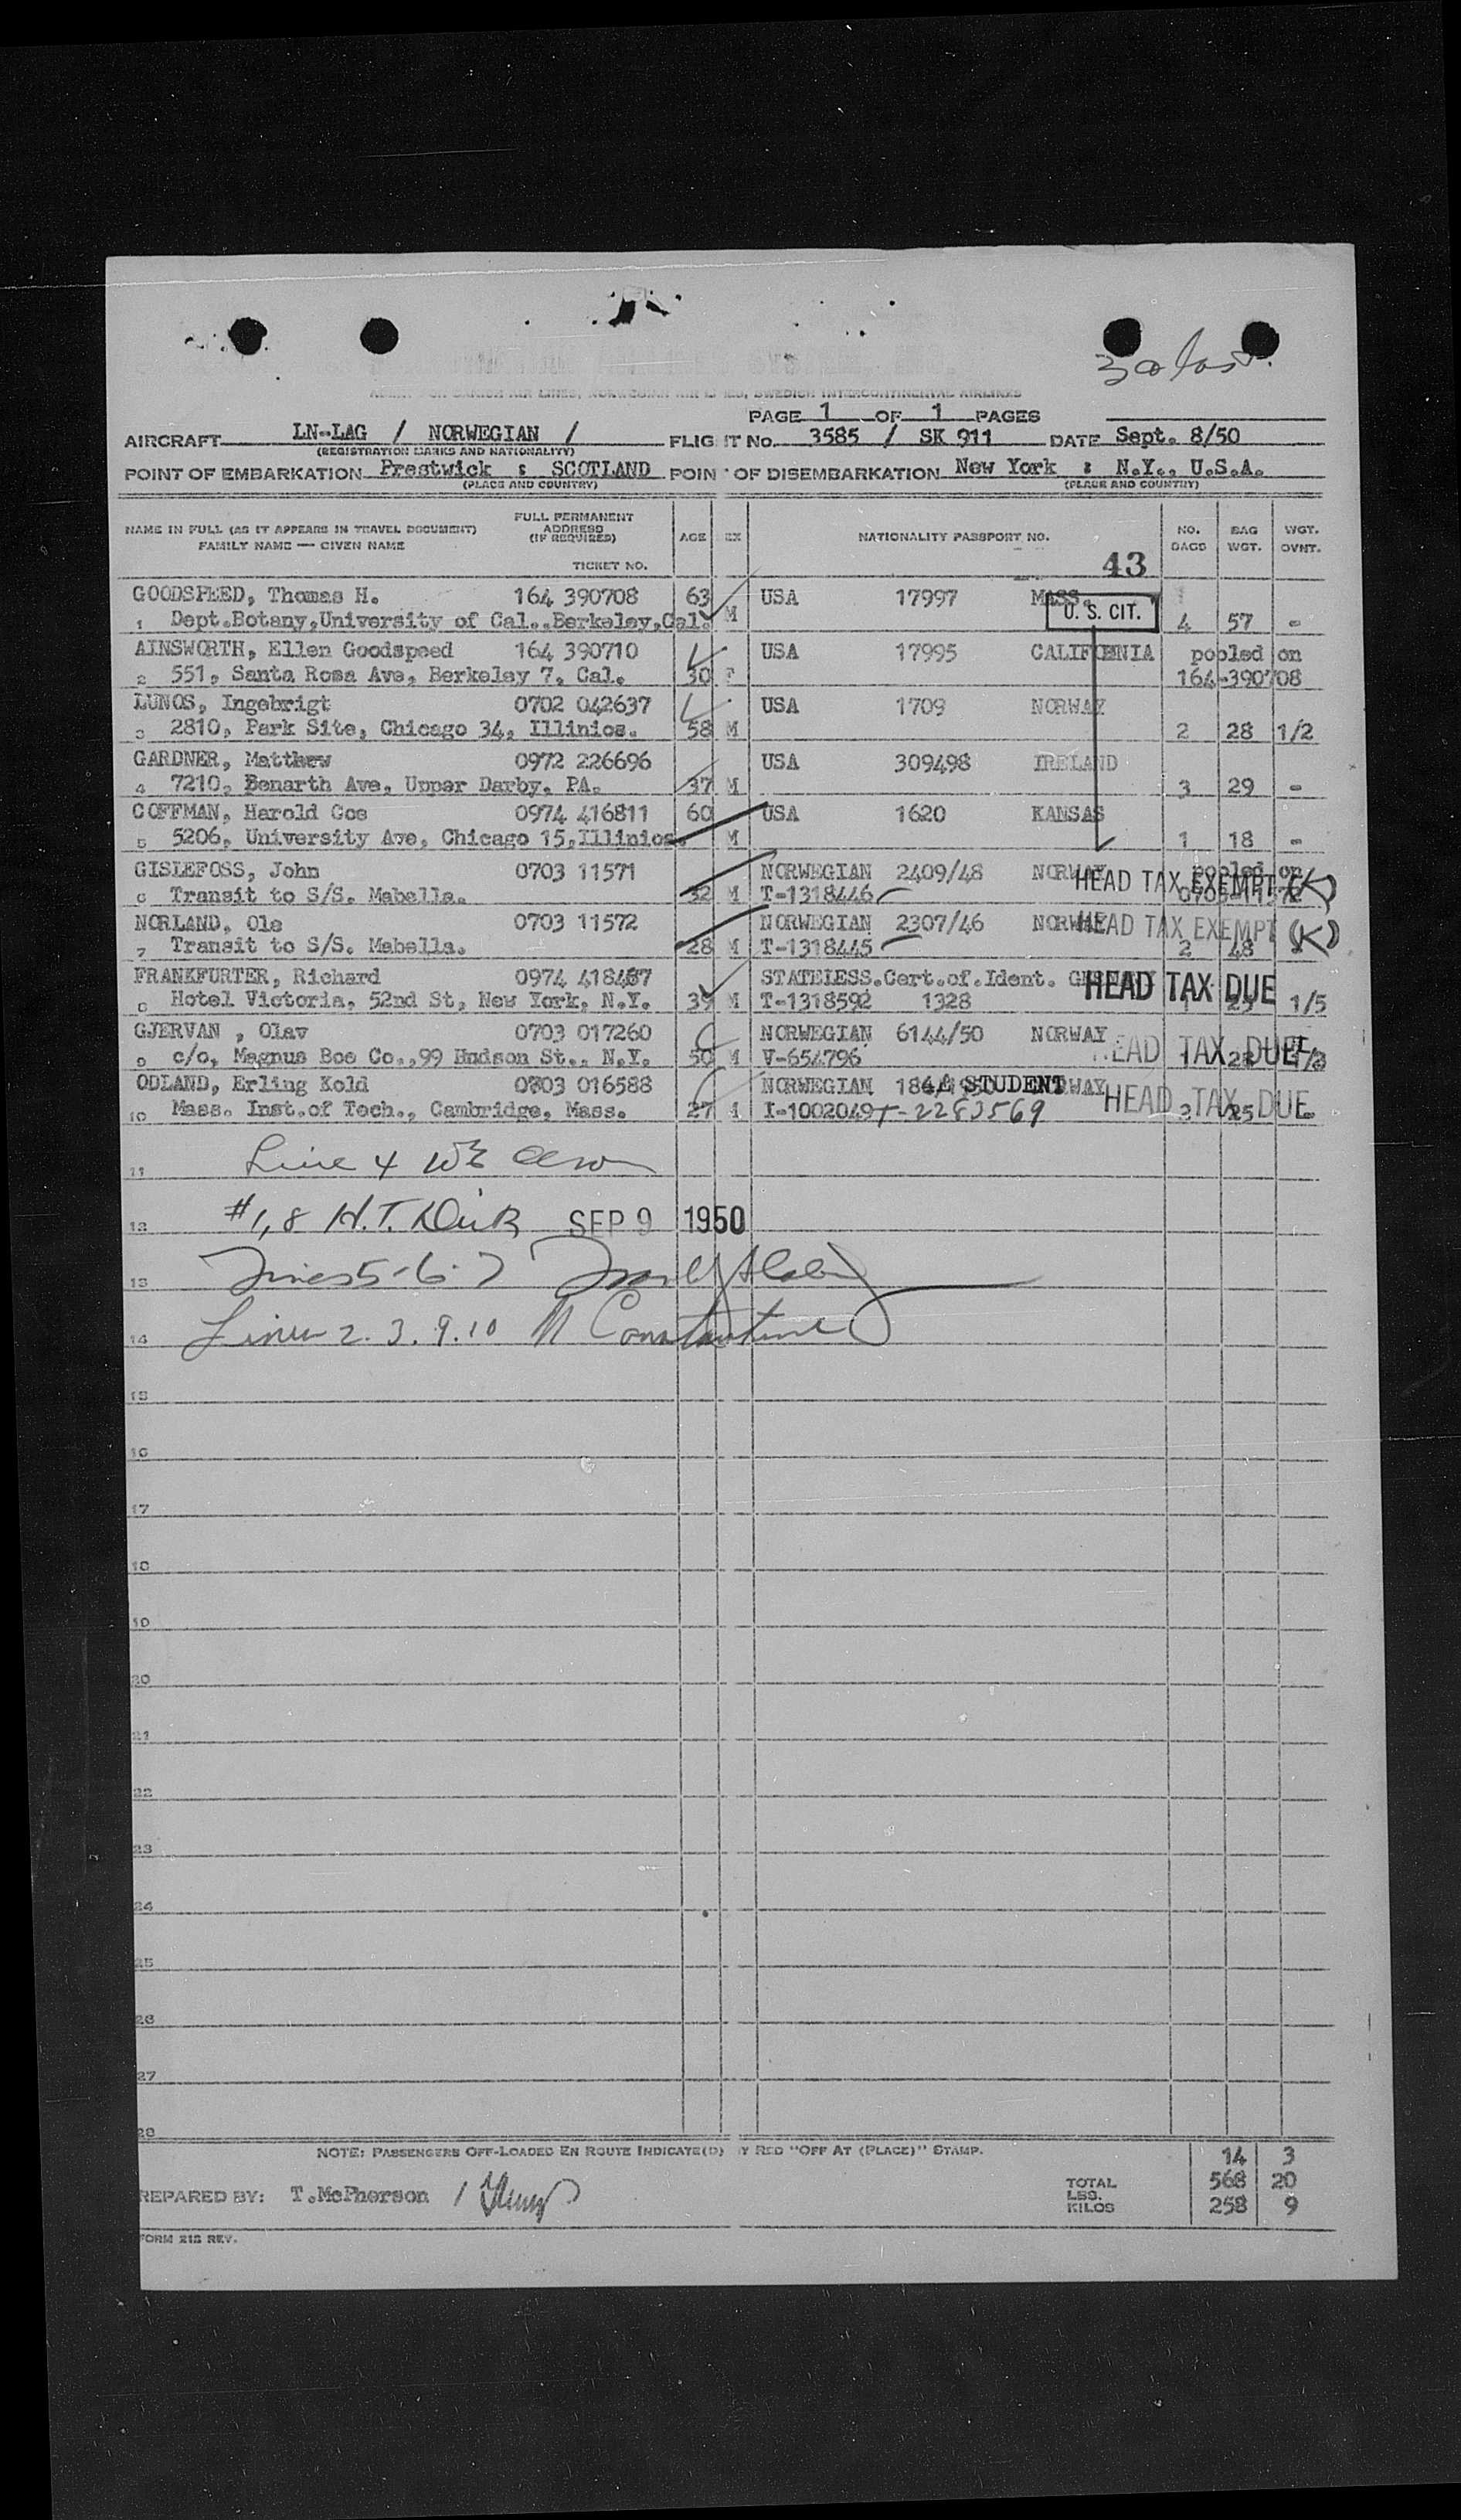 AGENT FOR DANISH AIR LINES, NORWEGIAN AIR LINES, SWEDISH INTERCONTINENTAL AIRLINES
PAGE 1 OF 1 PAGES
AIRCRAFT LN-LAG / NORWEGIAN / FLIGHT No. 3585 / SK 911 DATE Sept. 8/50
(REGISTRATION MARKS AND NATIONALITY)
POINT OF EMBARKATION Prestwick : SCOTLAND POINT OF DISEMBARKATION New York : N.Y., U.S.A.
(PLACE AND COUNTRY) (PLACE AND COUNTRY)
NAME IN FULL (AS IT APPEARS IN TRAVEL DOCUMENT)
FAMILY NAME — GIVEN NAME
FULL PERMANENT
ADDRESS
(IF REQUIRED)
TICKET NO.
AGE
EX
NATIONALITY PASSPORT NO.
NO.
BAGS
BAG
WGT.
WGT.
OVNT.
43
GOODSPEED, Thomas H. 164 390708 63 USA 17997 MASS.
U. S. CIT.
1 Dept.Botany,University of Cal.,Berkeley,Cal. M 4 57 -
AINSWORTH, Ellen Goodspeed 164 390710 USA 17995 CALIFORNIA pooled on
2 551, Santa Rosa Ave, Berkeley 7. Cal. 30 F 164-390708
LUNOS, Ingebrigt 0702 042637 USA 1709 NORWAY
3 2810, Park Site, Chicago 34, Illinios. 58 M 2 28 1/2
GARDNER, Matthew 0972 226696 USA 309498 IRELAND
4 7210, Benarth Ave, Upper Darby. PA. 37 M 3 29 -
COFFMAN, Harold Coe 0974 416811 60 USA 1620 KANSAS
5 5206, University Ave, Chicago 15,Illinios. M 1 18 -
GISLEFOSS, John 0703 11571 NORWEGIAN 2409/48 NORWAY pooled on
HEAD TAX EXEMPT (K)
6 Transit to S/S. Mabella. 32 M T-1318446 0703-11572
NORLAND, Ole 0703 11572 NORWEGIAN 2307/46 NORWAY
HEAD TAX EXEMPT (K)
7 Transit to S/S. Mabella. 28 M T-1318445 2 48
FRANKFURTER, Richard 0974 418467 STATELESS.Cert.of.Ident.
HEAD TAX DUE
8 Hotel Victoria, 52nd St, New York, N.Y. 39 M T-1318592 1328 1 1/5
GJERVAN , Olav 0703 017260 NORWEGIAN 6144/50 NORWAY
HEAD TAX DUE
9 c/o, Magnus Boe Co.,99 Hudson St., N.Y. 50 M V-654796 1
ODLAND, Erling Kold 0703 016588 NORWEGIAN STUDENT NORWAY
HEAD TAX DUE
10 Mass. Inst.of Tech., Cambridge, Mass. 27 I-1002049 T-2282569 2 25
11 Line 4
12 #1,8 H.T. SEP 9 1950
13 Lines 5-6-7
14 Lines 2. 3. 9. 10 M Constantine
15
16
17
18
19
20
21
22
23
24
25
26
27
28
NOTE: PASSENGERS OFF-LOADED EN ROUTE INDICATE(D) BY RED "OFF AT (PLACE)" STAMP.
14 3
TOTAL
LBS. 568 20
KILOS 258 9
PREPARED BY: T.McPherson /
FORM 212 REV.